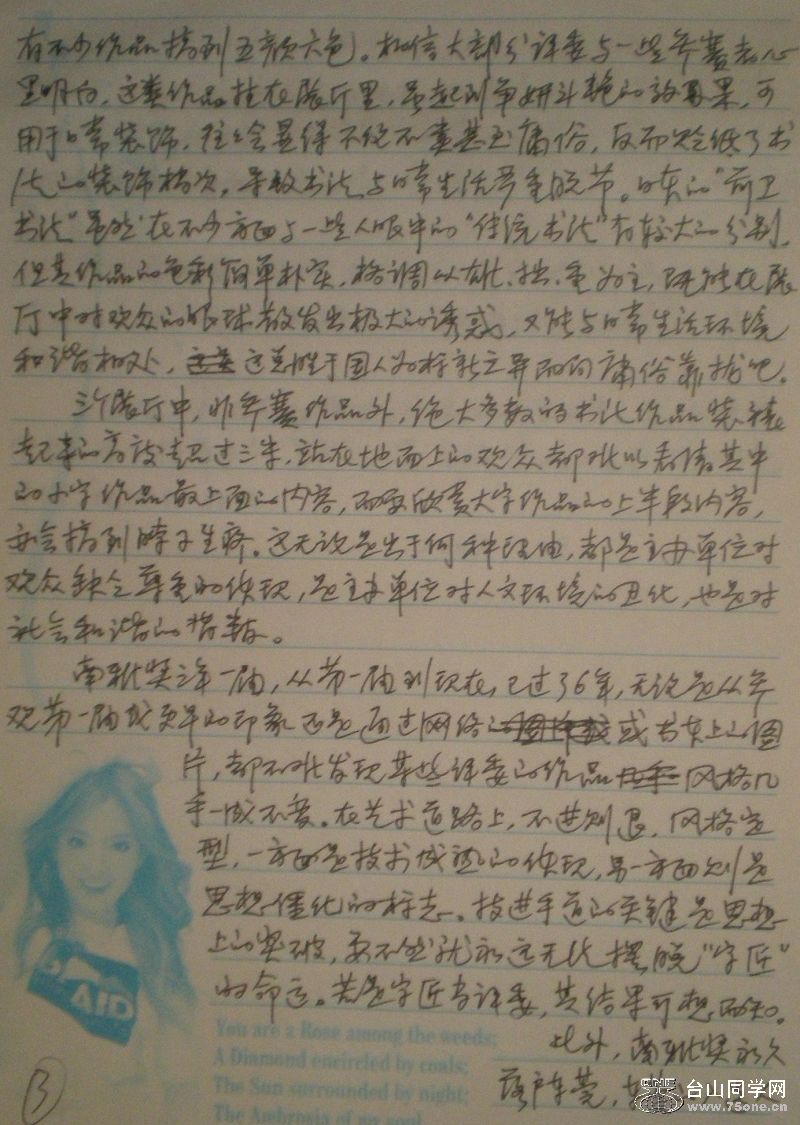 有不少作品搞到五颜六色。相信大部分评委与一些参赛者心
里明白，这类作品挂在展厅里，虽起到争妍斗艳的效果，可
用于日常装饰，往往会显得不伦不类甚至庸俗，反而贬低了书
法的装饰档次，导致书法与日常生活严重脱节。日本的“前卫
书法”虽然在不少方面与一些人眼中的“传统书法”有较大的分别，
但其作品的色彩简单朴实，格调以古、拙、重为主，既能在展
厅中对观众的眼球散发出极大的诱惑，又能与日常生活环境
和谐相处，这总胜于国人为标新立异而向庸俗靠拢吧。
三个展厅中，非参赛作品外，绝大多数的书法作品装裱
起来的高度超过三米，站在地面上的观众都难以看清其中
的小字作品最上面的内容，而要欣赏大字作品的上半段内容，
亦会搞到脖子生疼。这无论是出于何种理由，都是主办单位对
观众缺乏尊重的体现，是主办单位对人文环境的丑化，也是对
社会和谐的背离。
南雅奖三年一届，从第一届到现在，已过了6年，无论是从参
观第一届或更早的印象还是通过网络或书本上的图
片，都不难发现某些评委的作品风格几
乎一成不变。在艺术道路上，不进则退，风格定
型，一方面是技术成熟的体现，另一方面则是
思想僵化的标志。技进乎道的关键是思想
上的突破，要不然就永远无法摆脱“字匠”
的命运。若是字匠当评委，其结果可想而知。
此外，南雅奖永久
落户东莞，
AID
You are a Rose among the weeds;
A Diamond encircled by coals;
The Sun surrounded by night;
The Ambrosia of my soul
3
台山同学网
www.75one.cn